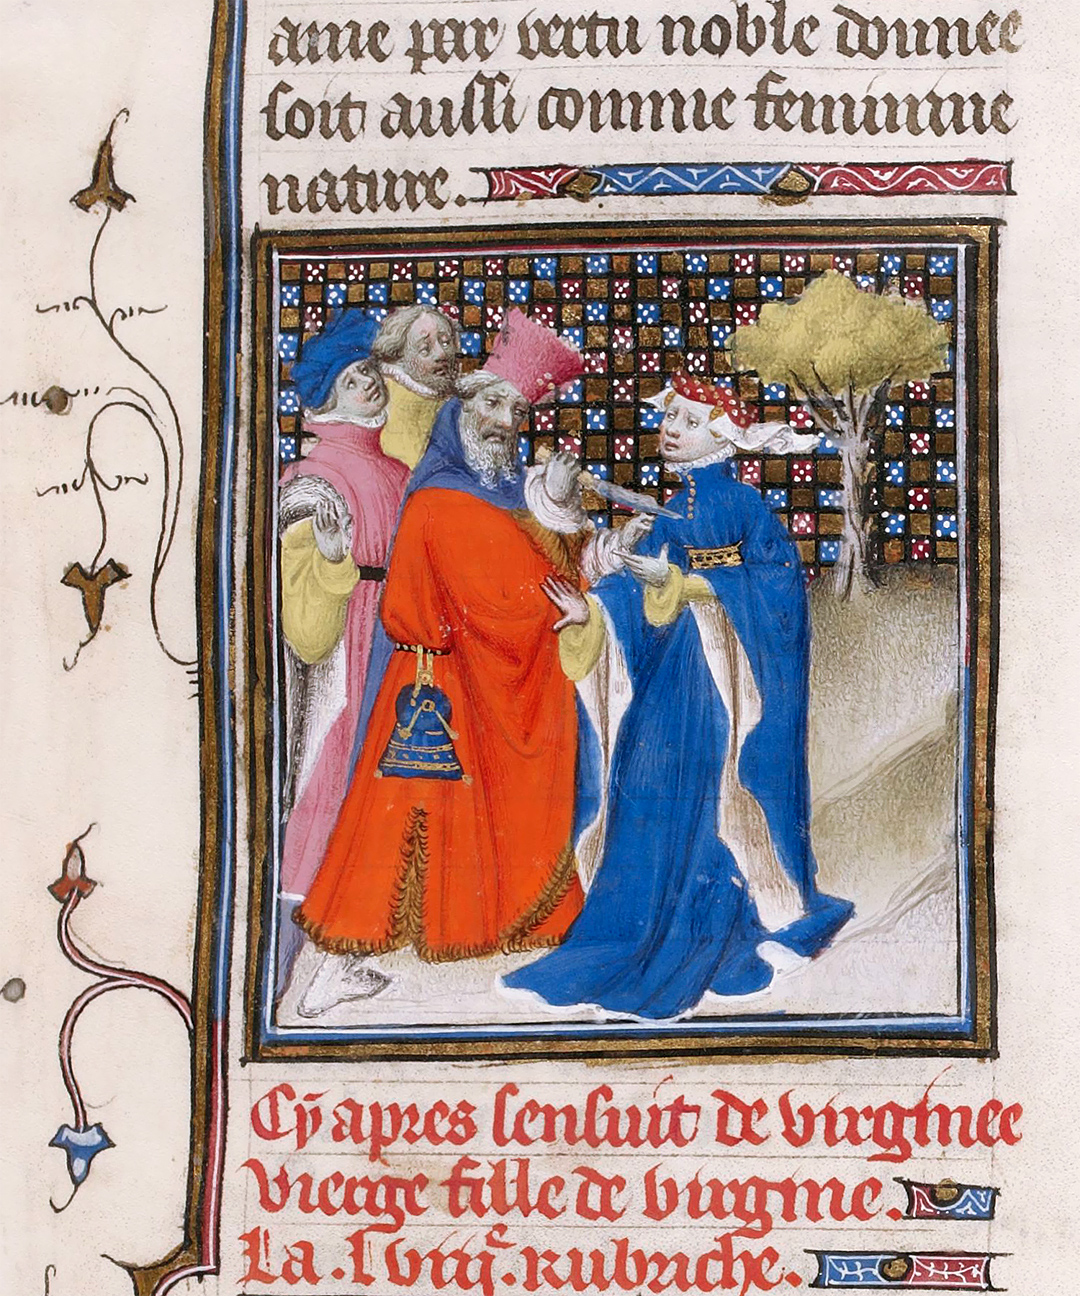 ame par vertu noble donnee
soit aussi comme feminine
nature.
Cy apres sensuit de virginee
vierge fille de virgine.
La .lviije. rubriche.